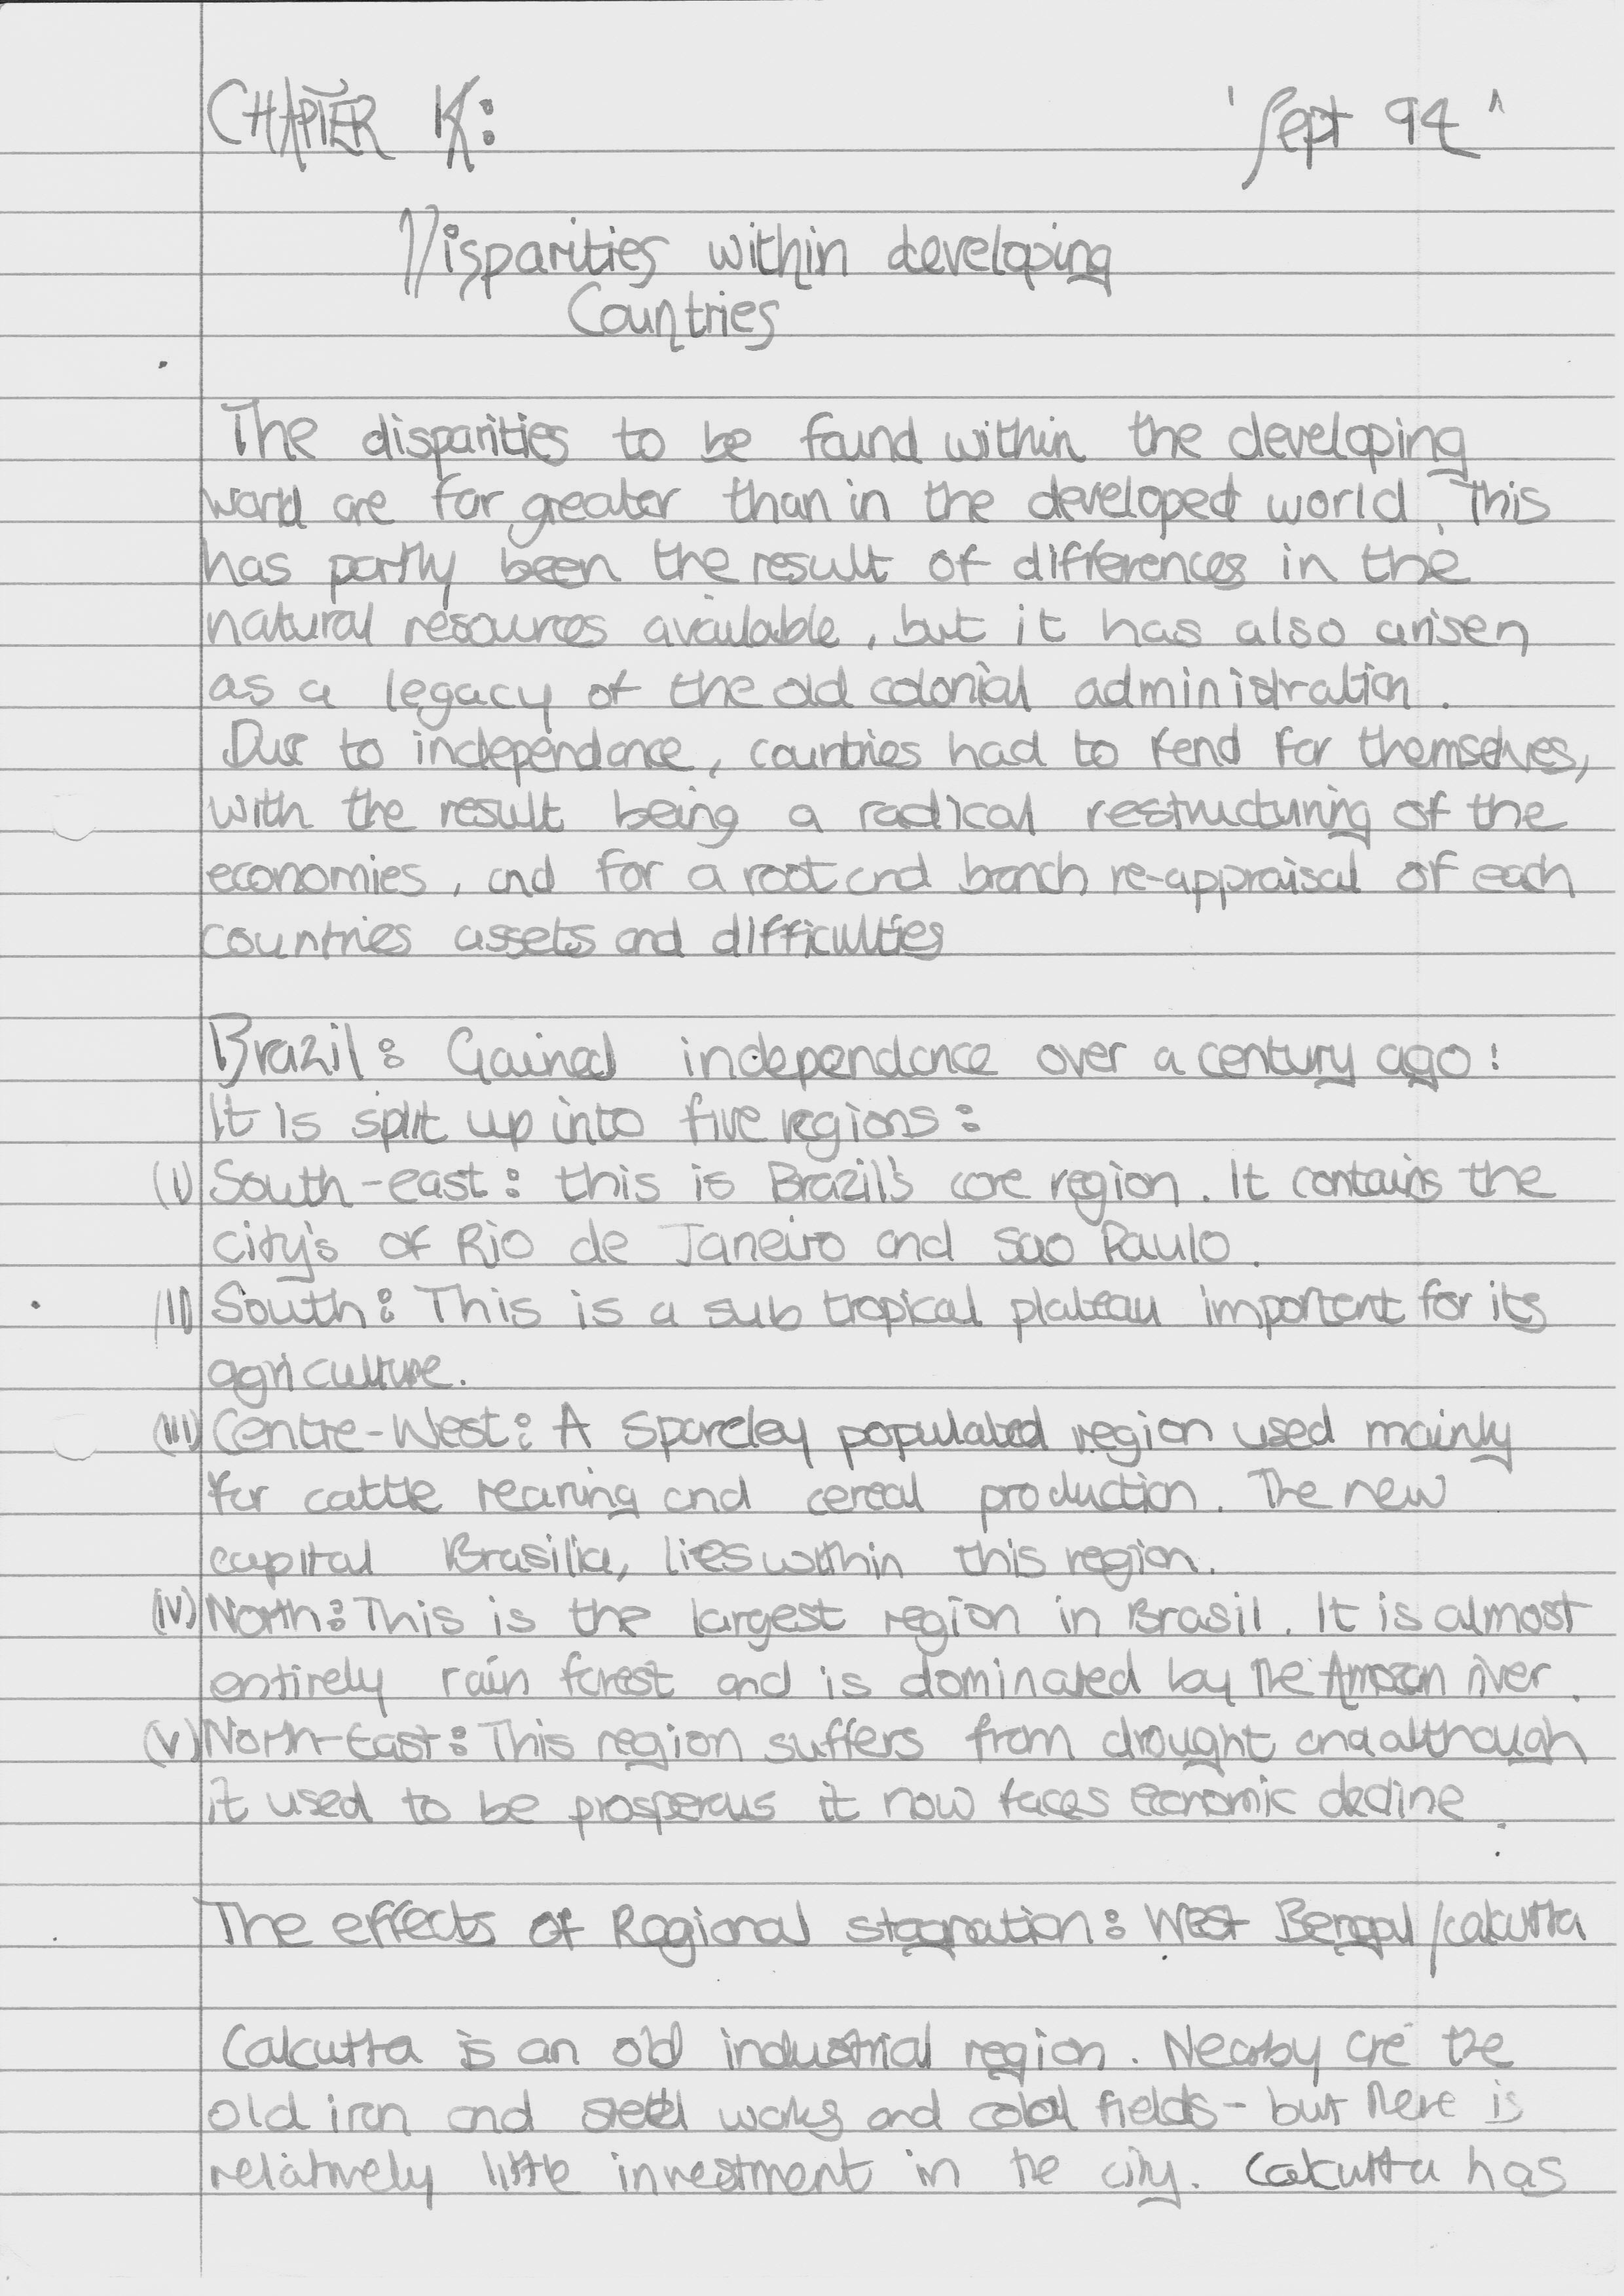 CHAPTER K:
'Sept 94"
Disparities within developing
Countries
The disparities to be found within the developing
world are far greater than in the developed world. This
has partly been the result of differences in the
natural resources available, but it has also arisen
as a legacy of the old colonial administration.
Due to independance, countries had to fend for themselves,
with the result being a radical restructuring of the
economies, and for a root and branch re-appraisal of each
countries assets and difficulties
Brazil: Gained independance over a century ago!
It is split up into five regions:
(i) South-east: this is Brazil's core region. It contains the
city's of Rio de Janeiro and Sao Paulo.
(ii) South: This is a sub tropical plateau important for its
agriculture.
(iii) Centre-West: A sparcley populated region used mainly
for cattle rearing and cereal production. The new
capital Brasilia, lies within this region.
(iv) North: This is the largest region in Brasil. It is almost
entirely rain forest and is dominated by the Amazon river.
(v) North-East: This region suffers from drought and although
it used to be prosperous it now faces economic decline.
The effects of Regional stagnation: West Bengal/calcutta
Calcutta is an old industrial region. Nearby are the
old iron and steel works and coal fields - but there is
relatively little investment in the city. Calcutta has